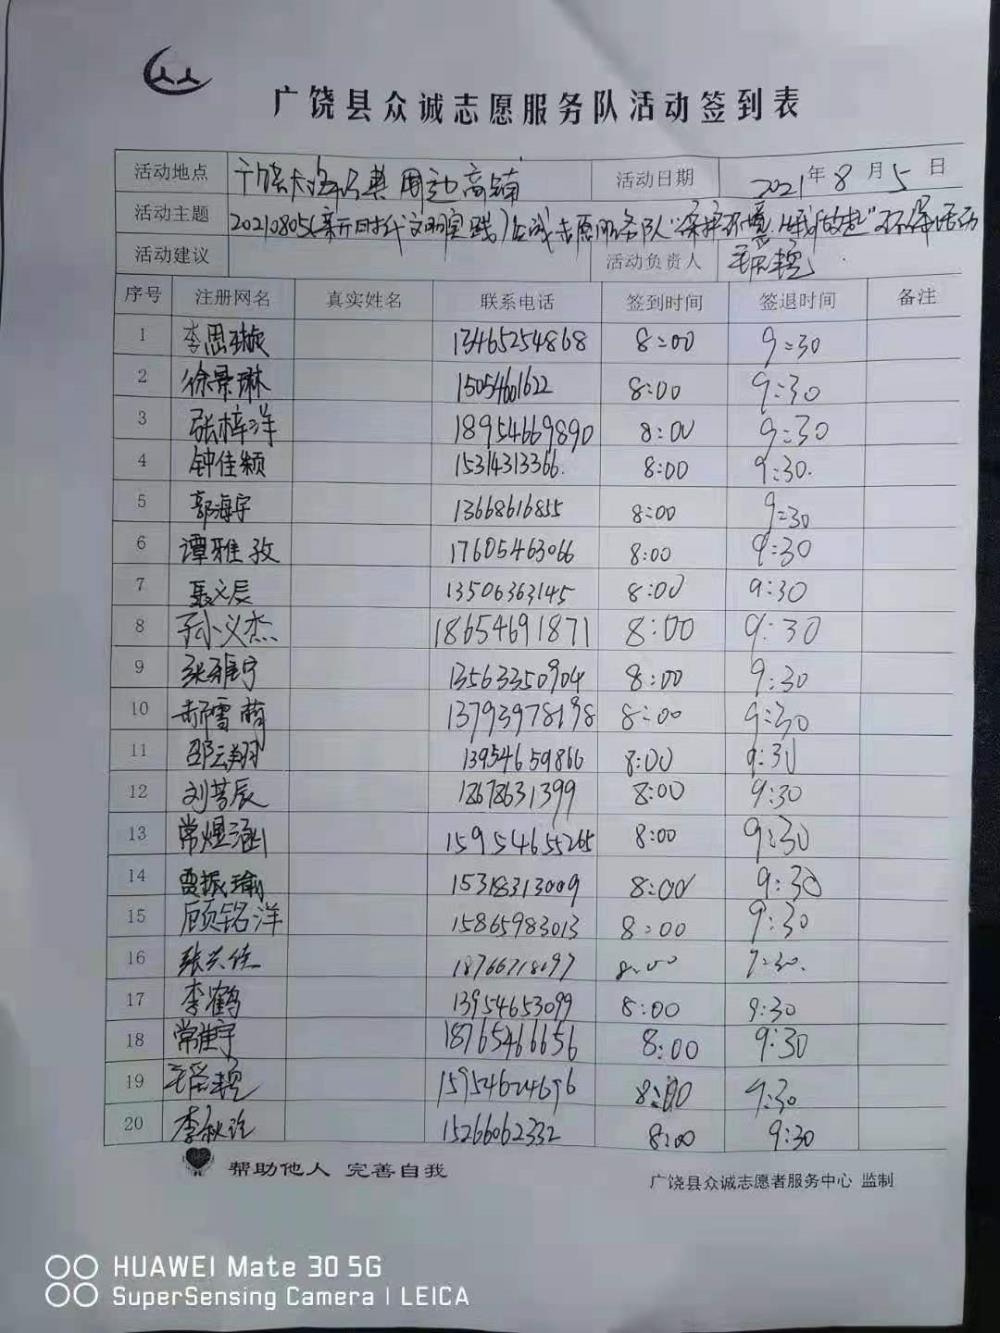 广饶县众诚志愿服务队活动签到表
活动地点 广饶 周边商铺 活动日期 2021年8月5日
活动主题 20210805(新时代文明实践)众诚志愿服务队"保护环境,从我做起"环保活动
活动建议 活动负责人
序号 注册网名 真实姓名 联系电话 签到时间 签退时间 备注
1 李思璇 13465254868 8:00 9:30
2 徐景琳 15054601622 8:00 9:30
3 张梓洋 18954669890 8:00 9:30
4 钟佳颖 15314313366. 8:00 9:30.
5 郭海宇 13668616855 8:00 9:30
6 谭雅孜 17605463066 8:00 9:30
7 聂义辰 13506363145 8:00 9:30
8 孙义杰 18654691871 8:00 9:30
9 张雅宁 13563350904 8:00 9:30
10 郝雪萌 13793978198 8:00 9:30
11 邵云翔 13954659866 8:00 9:30
12 刘芳辰 18678631399 8:00 9:30
13 常煜涵 15954655265 8:00 9:30
14 贾振瑜 15318313009 8:00 9:30
15 顾铭洋 15865983013 8:00 9:30
16 8:00 9:30.
17 李鹤 13954653099 8:00 9:30
18 常佳宇 18765466656 8:00 9:30
19 15954624696 8:00 9:30
20 15266062332 8:00 9:30
帮助他人 完善自我
广饶县众诚志愿者服务中心 监制
HUAWEI Mate 30 5G
SuperSensing Camera | LEICA